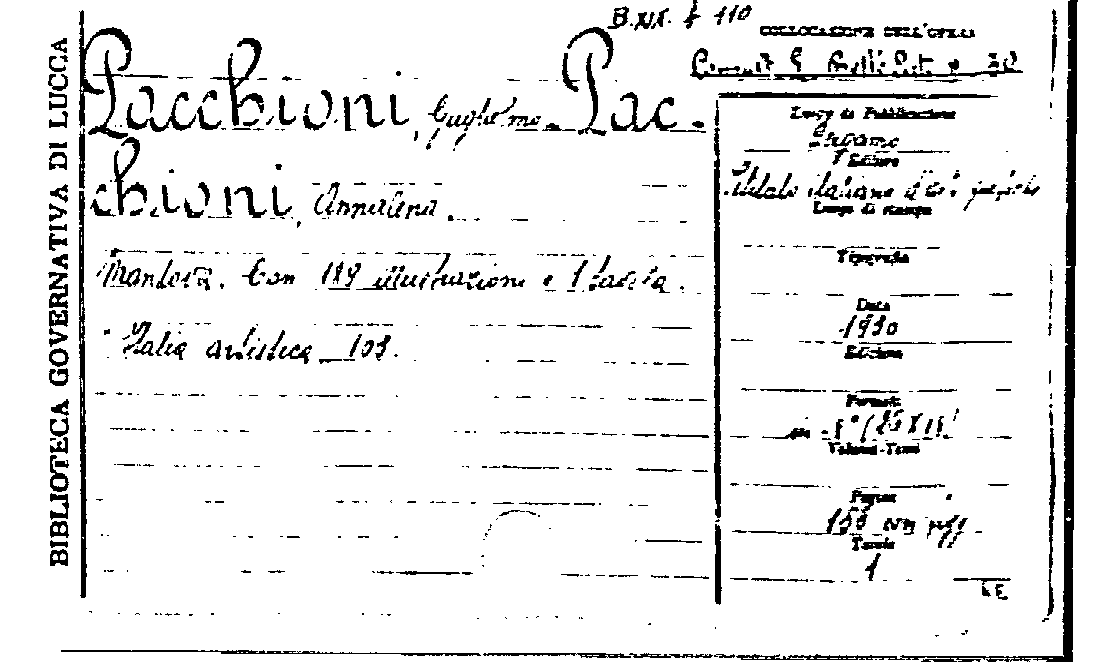 BIBLIOTECA GOVERNATIVA DI LUCCA
B.XIX. f 110
COLLOCAZIONE DELL'OPERA
Pacchioni, Guglielmo. Pac-
chioni, Annalena.
Mantova. Con 189 illustrazioni e 1 tavola.
Italia artistica 103.
Luogo di Pubblicazione
Bergamo
Editore
Istituto italiano d'arti grafiche
Luogo di stampa
Tipografia
Data
1930
Edizione
Formato
in
Volumi-Tomi
Pagine
con
Tavole
1